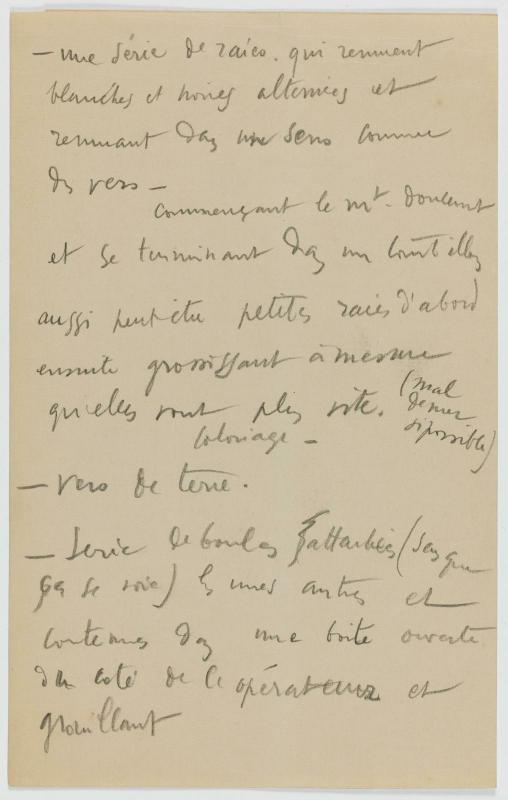 — une série de raies. qui remuent
blanches et noires alternées et
remuant dans un sens comme
des vers —
commençant le mt. doucement
et se terminant dans un
aussi peut-être petites raies d'abord
ensuite grossissant à mesure
qu'elles vont plus vite.
(mal
dessiner
si possible)
coloriage —
— vers de terre.
— Série de boules attachées (sans que
ça se voie) les unes autres et
contenues dans une boîte ouverte
du côté de l'opérateur et
grouillant